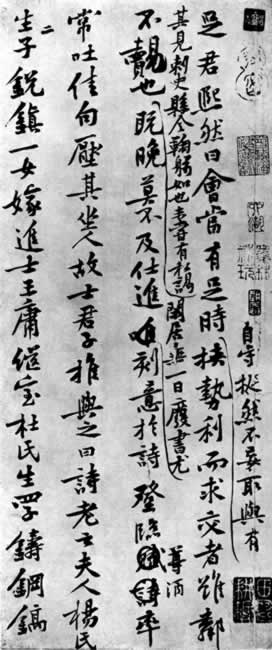 自守 然不妄取與有
是君熙然曰會當有是時挾勢利而求交者雖鄰
其見刺史縣令鞠躬如也未嘗有私謁閑居 一日廢書尤
尊酒
不覿也既晚莫不及仕進唯刻意於詩登臨賦詩率
常吐佳句壓其坐人故士君子推與之曰詩老云夫人楊氏
生二子銳鎮一女嫁進士王庸繼室杜氏生四子鑄鋼鎬